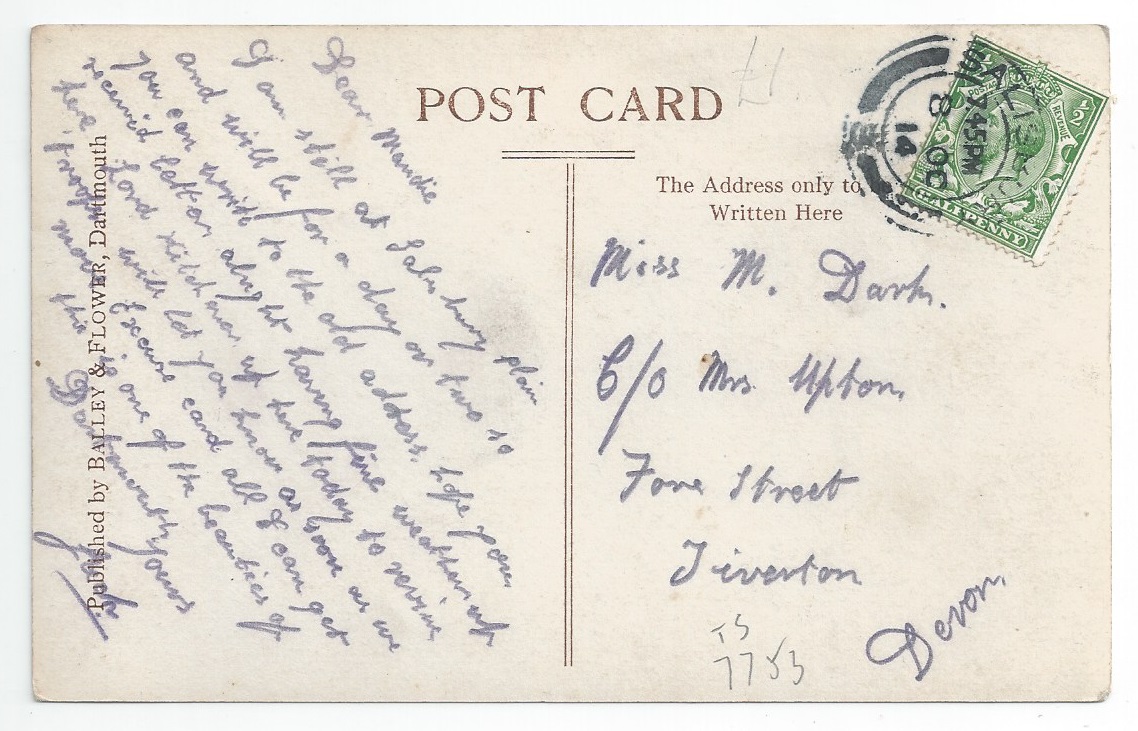 POST CARD
£1.
The Address only to be
Written Here
SALISBURY
7.45PM
8 OC
14
POSTAGE
REVENUE
½
HALFPENNY
Dear Maudie
I am still at Salisbury plain
and will be for a day or two so
you can write to the old address, hope you
receivd letter alright having fine weather up
here, Lord Kitchener up here today to review
troops will let you know as soon as we
move Excuse card all I can get
this is one of the beauties of
Dartmouth yours
Jack
Published by BALLEY & FLOWER, Dartmouth
Miss M. Dark.
C/o Mrs Upton,
Fore Street
Tiverton
Devon,
TS
7753